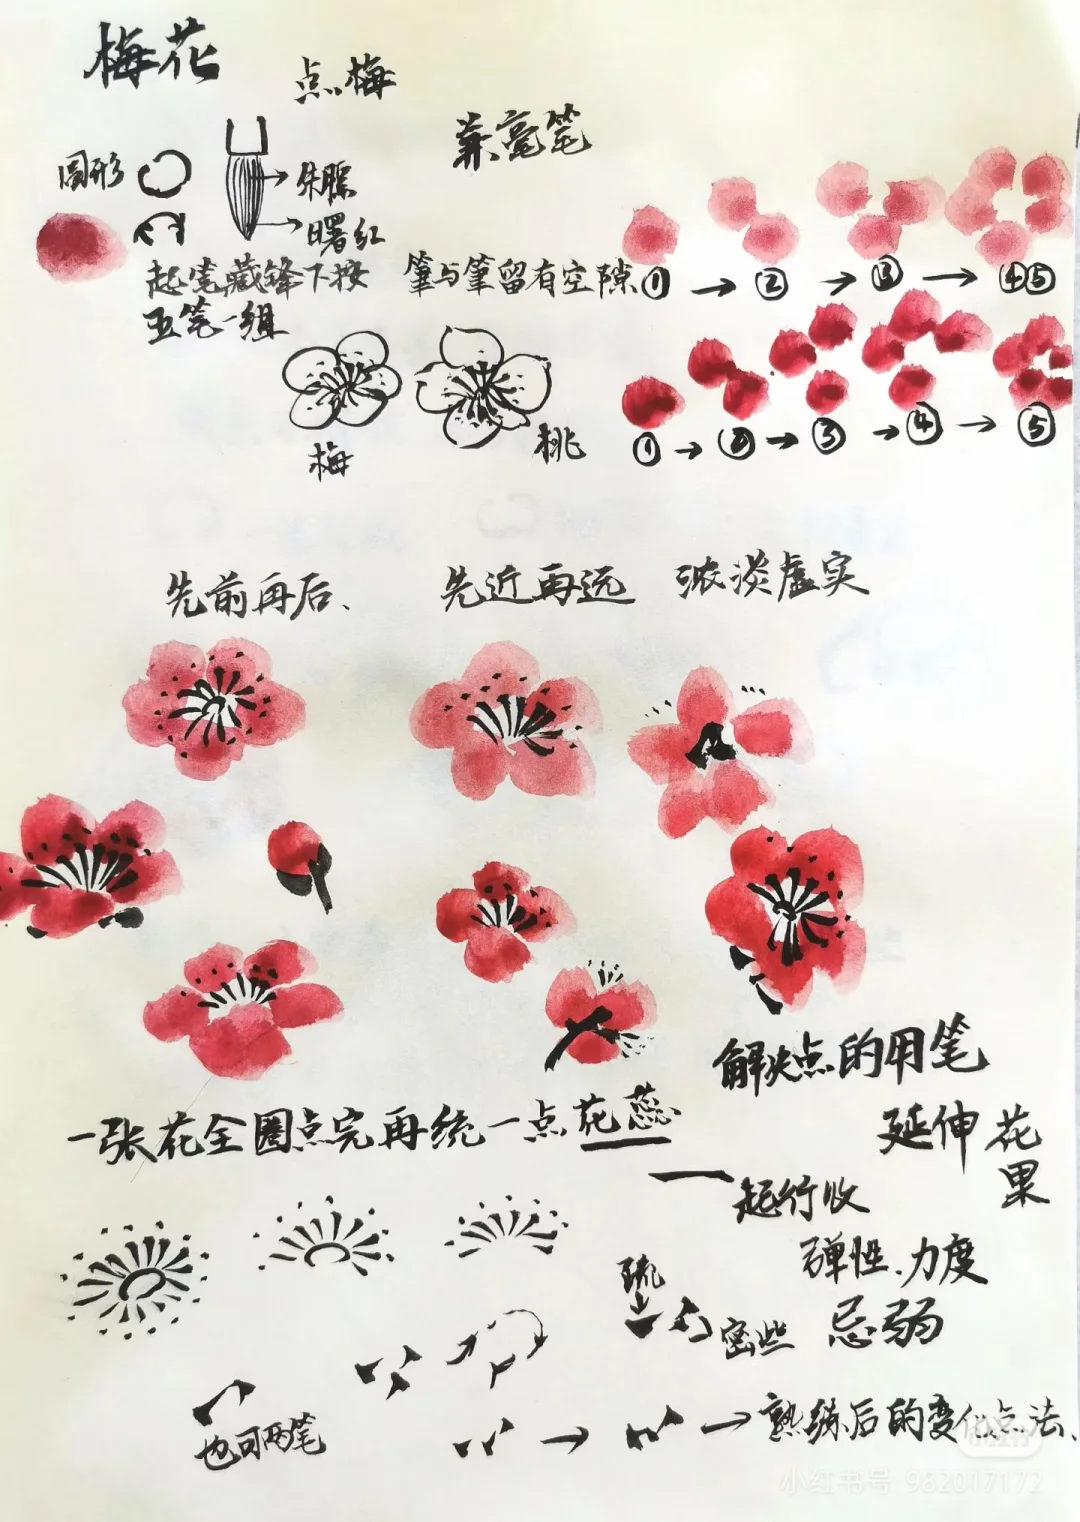 梅花
点梅
兼毫笔
圆形
朱膘
曙红
起笔藏锋下按
五笔一组
筆与筆留有空隙
① → ② → ③ → ④⑤
① → ② → ③ → ④ → ⑤
梅
桃
先前再后、
先近再远
浓淡虚实
解决点的用笔
一张花全圈点完再统一点花蕊
延伸花果
起行收
弹性.力度
忌弱
疏
密些
也可两笔
熟练后的变化点法、
小红书
小红书号 982017172